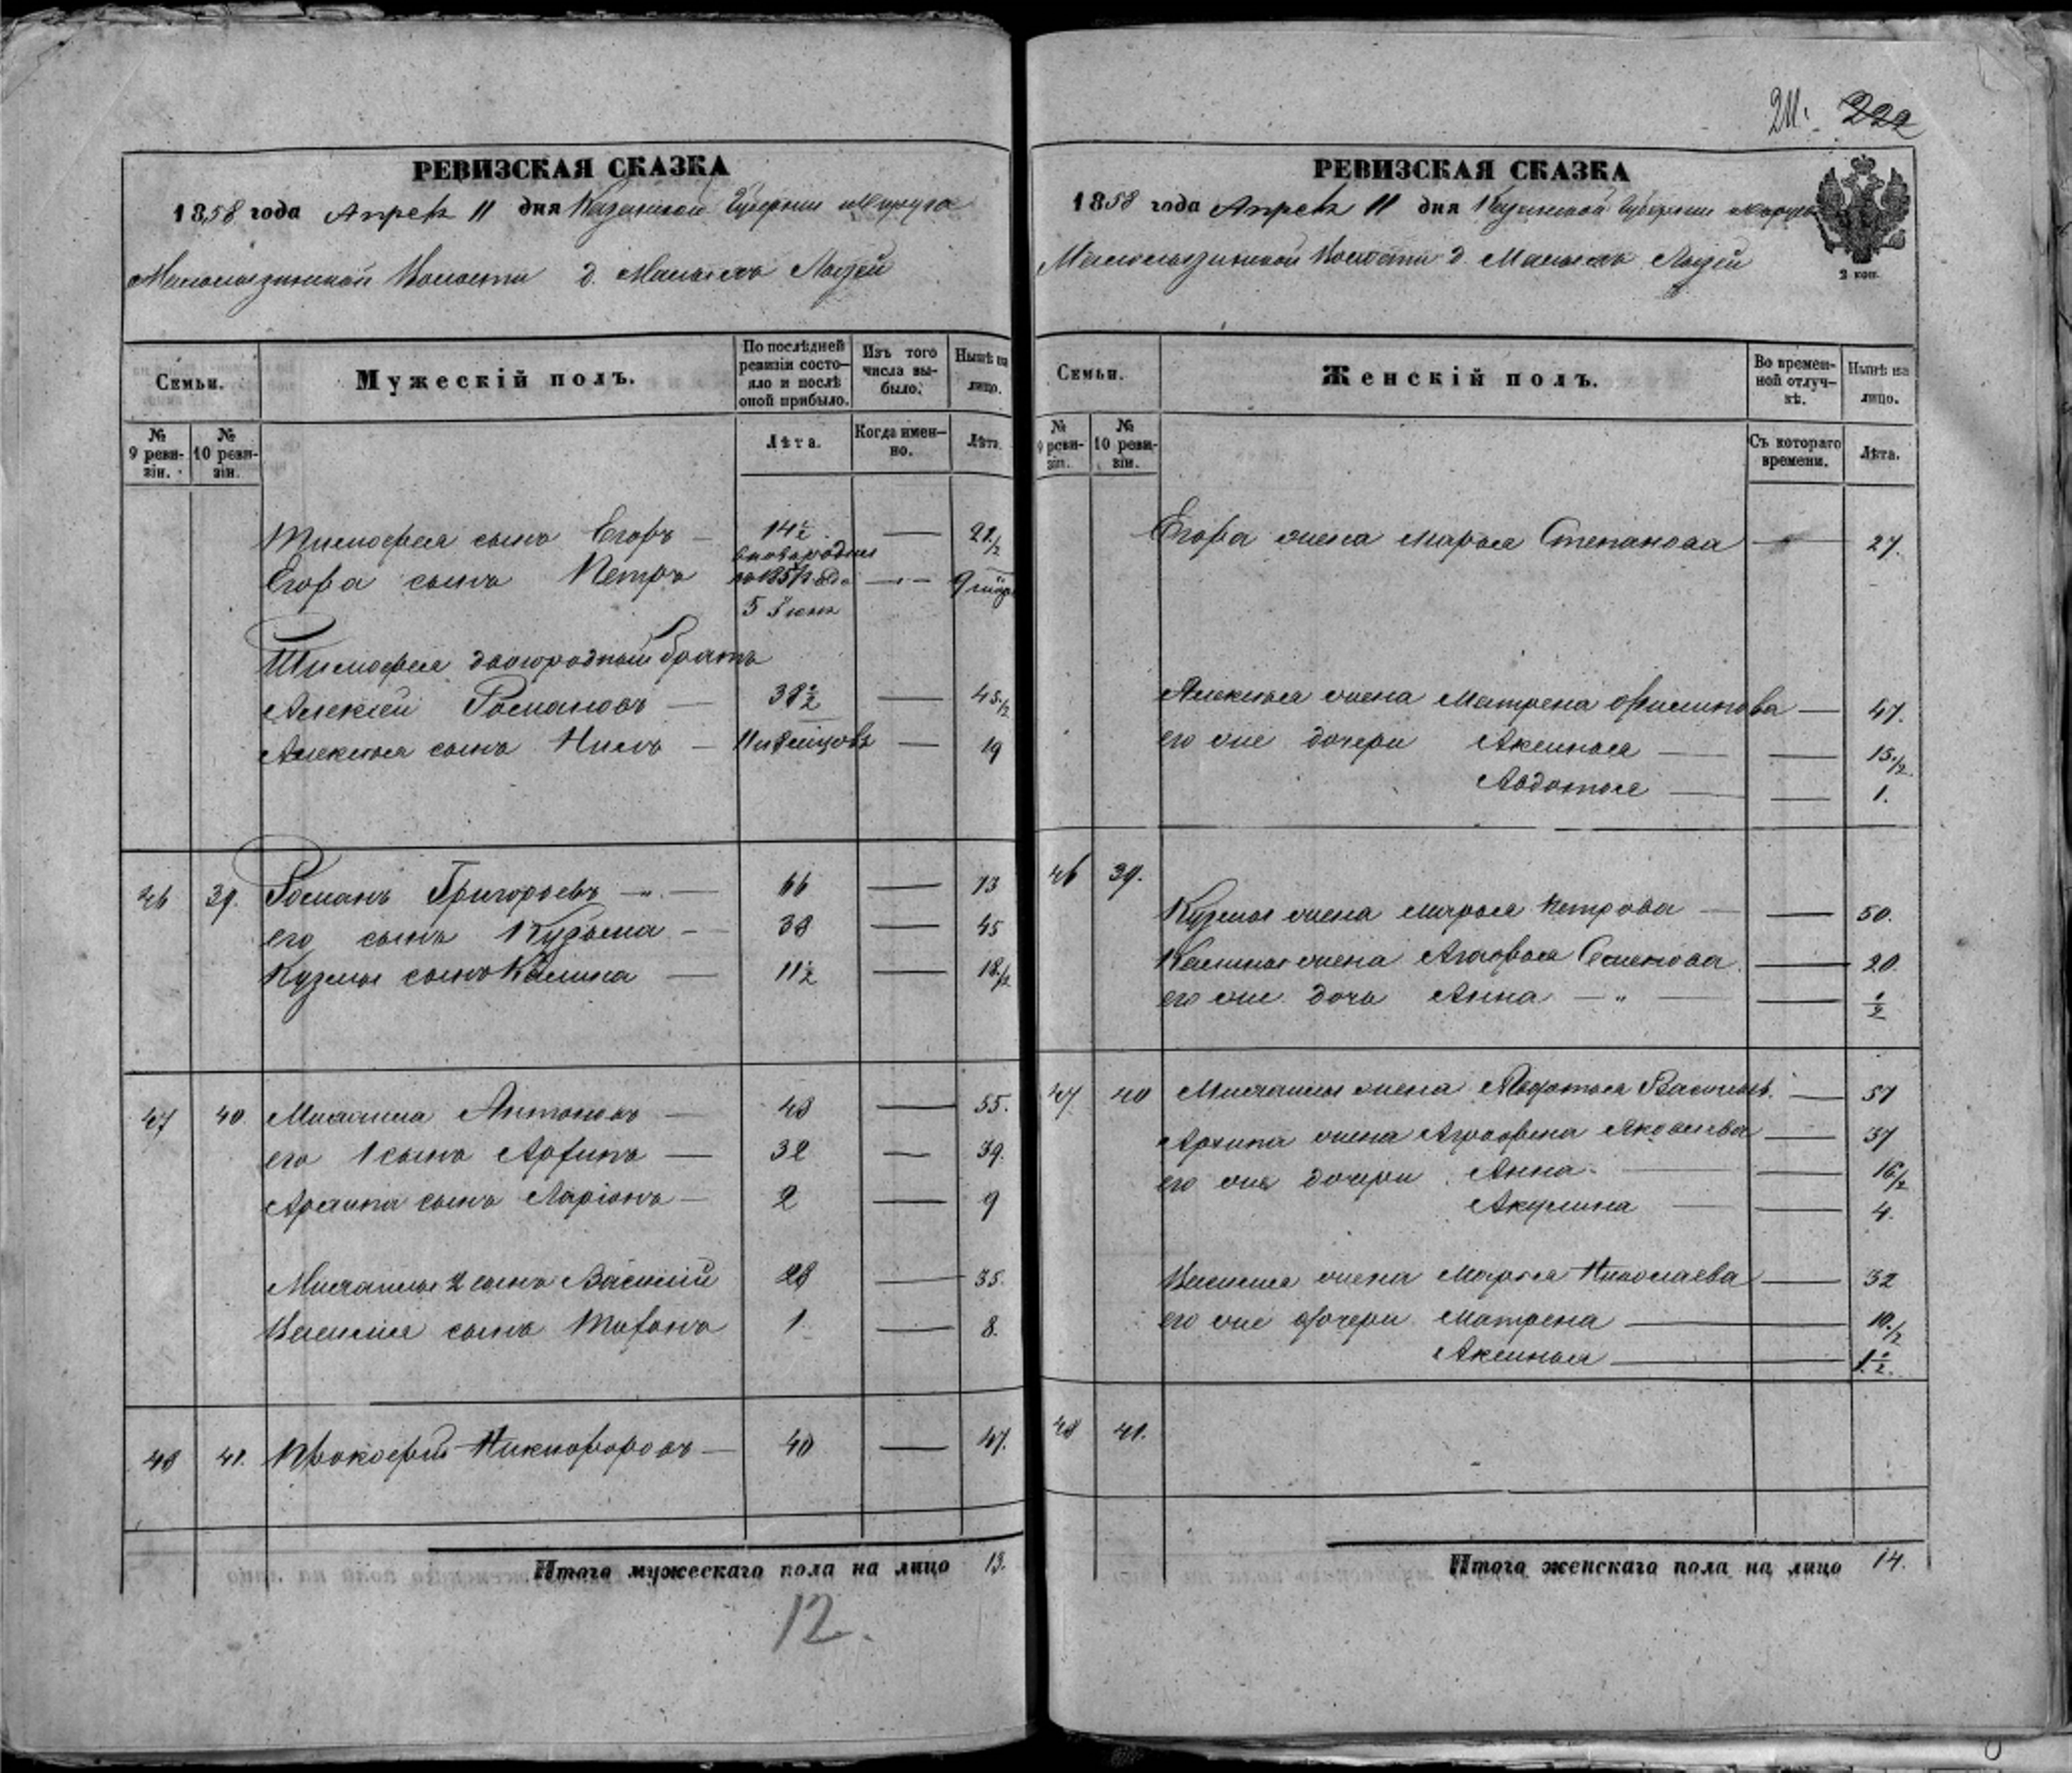 РЕВИЗСКАЯ СКАЗКА
1858 года Апреля 11 дня Казанской Губернии и округа
Малолызинской Волости д. Малыхъ Лызей
Семьи.
Мужескій полъ.
По послѣдней ревизіи состо-
яло и послѣ
оной прибыло.
Изъ того
числа вы-
было.
Нынѣ на
лицо.
№
9 реви-
зіи.
№
10 реви-
зіи.
Лѣта.
Когда имен-
но.
Лѣта.
Тимофея сынъ Егоръ — 14½ — 21½
Егора сынъ Петръ
5 Іюня
Тимофея двоюродный братъ
Алексѣй Романовъ — 38½ — 45½
Алексѣя сынъ Нилъ — 11 мѣсяцовъ — 19
46 39. Романъ Григорьевъ — „ — 66 — 73
его сынъ Кузьма — 38 — 45
Кузмы сынъ Калина — 11½ — 18½
47 40. Антоновъ — 48 — 55.
его 1 сынъ Архипъ — 32 — 39.
Архипа сынъ Ларіонъ — 2 — 9
2 сынъ Василій 28 — 35.
Василья сынъ Трифонъ 1 — 8.
48 41. Прокофій Никифоровъ — 40 — 47.
Итого мужескаго пола на лицо 13.
12.
211. 222
РЕВИЗСКАЯ СКАЗКА
1858 года Апреля 11 дня Казанской Губернии и округа
Малолызинской Волости д. Малыхъ Лызей
2 коп.
Семьи.
Женскій полъ.
Во времен-
ной отлуч-
кѣ.
Нынѣ на
лицо.
№
9 реви-
зіи.
№
10 реви-
зіи.
Съ котораго
времени.
Лѣта.
Егора жена Марья Степанова — 27.
Алексѣя жена Матрена — 47.
его же дочери Аксинья — 15½.
Авдотья — 1.
46 39.
Кузмы жена Марья Петрова — 50.
Калины жена Агафья Семенова — 20.
его же дочь Анна — „ — ½
47 40 жена Васильев. — 57
Архипа жена Аграфена Яковлева — 37
его же дочери Анна — 16½
Акулина — 4.
Василья жена Марья Николаева — 32
его же дочери Матрена — 10½
Аксинья — 1½.
48 41.
Итого женскаго пола на лицо 14.